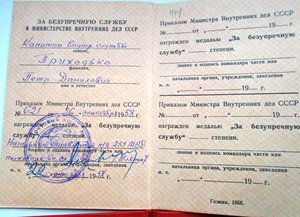 ЗА БЕЗУПРЕЧНУЮ СЛУЖБУ
В МИНИСТЕРСТВЕ ВНУТРЕННИХ ДЕЛ СССР
Капитан внутр. службы
звание,
Приходько
фамилия,
Петр Данилович
имя и отчество
Приказом Министра Внутренних дел СССР
№ 621 от сентября 1958 г.
награжден медалью „За безупречную
службу" степени.
п/я
м. п. 19 г.
Приказом Министра Внутренних дел СССР
№ от „ " 19 г.
награжден медалью „За безупречную
службу" степени.
звание и подпись командира части или
начальника органа, учреждения, заведения
м. п. „ " 19 г.
Приказом Министра Внутренних дел СССР
№ от „ " 19 г.
награжден медалью „За безупречную
службу" степени.
звание и подпись командира части или
начальника органа, учреждения, заведения
м. п. „ " 19 г.
Гознак. 1958.